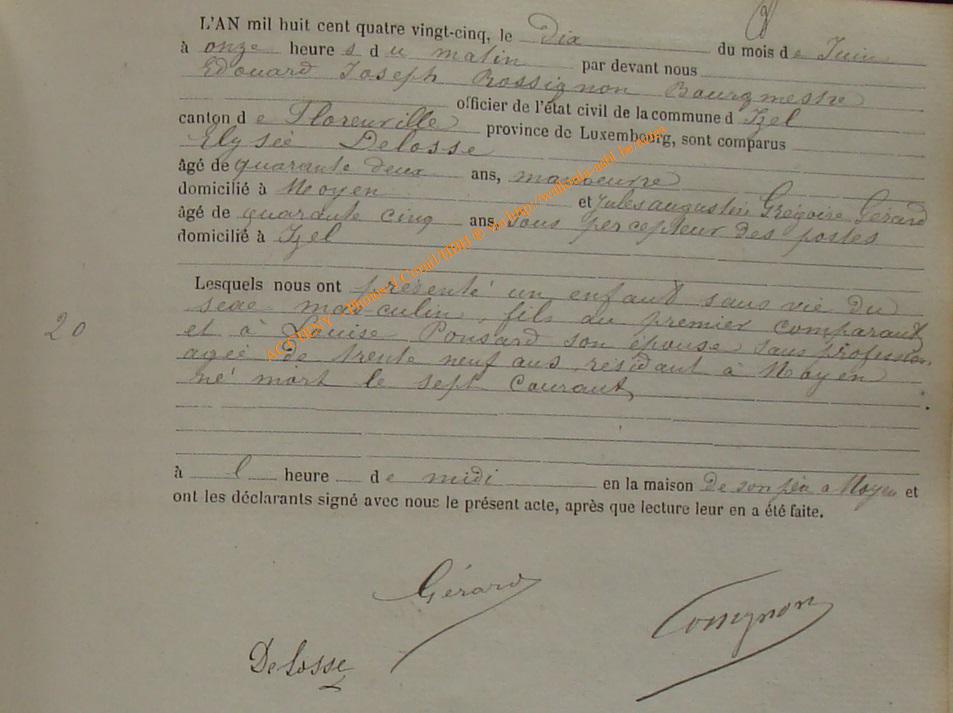 L'AN mil huit cent quatre vingt-cinq, le Dix du mois de Juin
à onze heures du matin par devant nous
Edouard Joseph Rossignon Bourgmestre
officier de l'état civil de la commune d Izel
canton de Florenville province de Luxembourg, sont comparus
Elysée Delosse
âgé de quarante deux ans, manoeuvre
domicilié à Moyen et Jules augustin Grégoire Gérard
âgé de quarante cinq ans, sous percepteur des postes
domicilié à Izel
Lesquels nous ont présenté un enfant sans vie du
sexe masculin, fils du premier comparant
20
et à Louise Ponsard son épouse sans profession,
agée de trente neuf ans, résidant à Moyen
né mort le sept courant,
à l heure de midi en la maison De son père a Moyen et
ont les déclarants signé avec nous le présent acte, après que lecture leur en a été faite.
Gérard
Rossignon
DeLosse